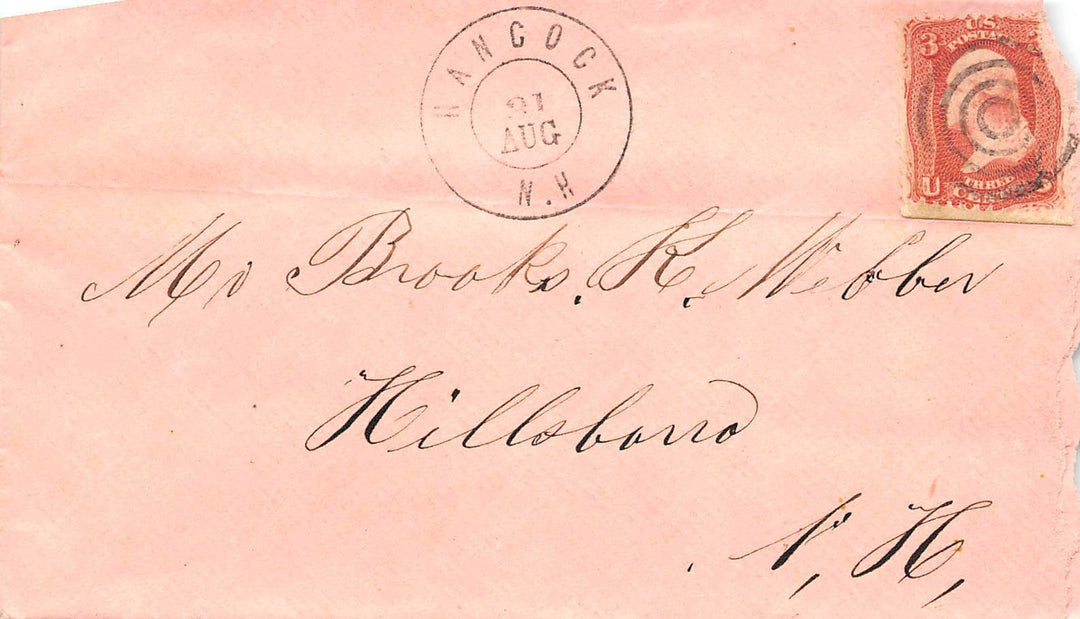 HANCOCK
21
AUG
N.H
3 U.S. POSTA
U
THREE
Mr Brooks. K. Webber
Hillsboro
N, H,